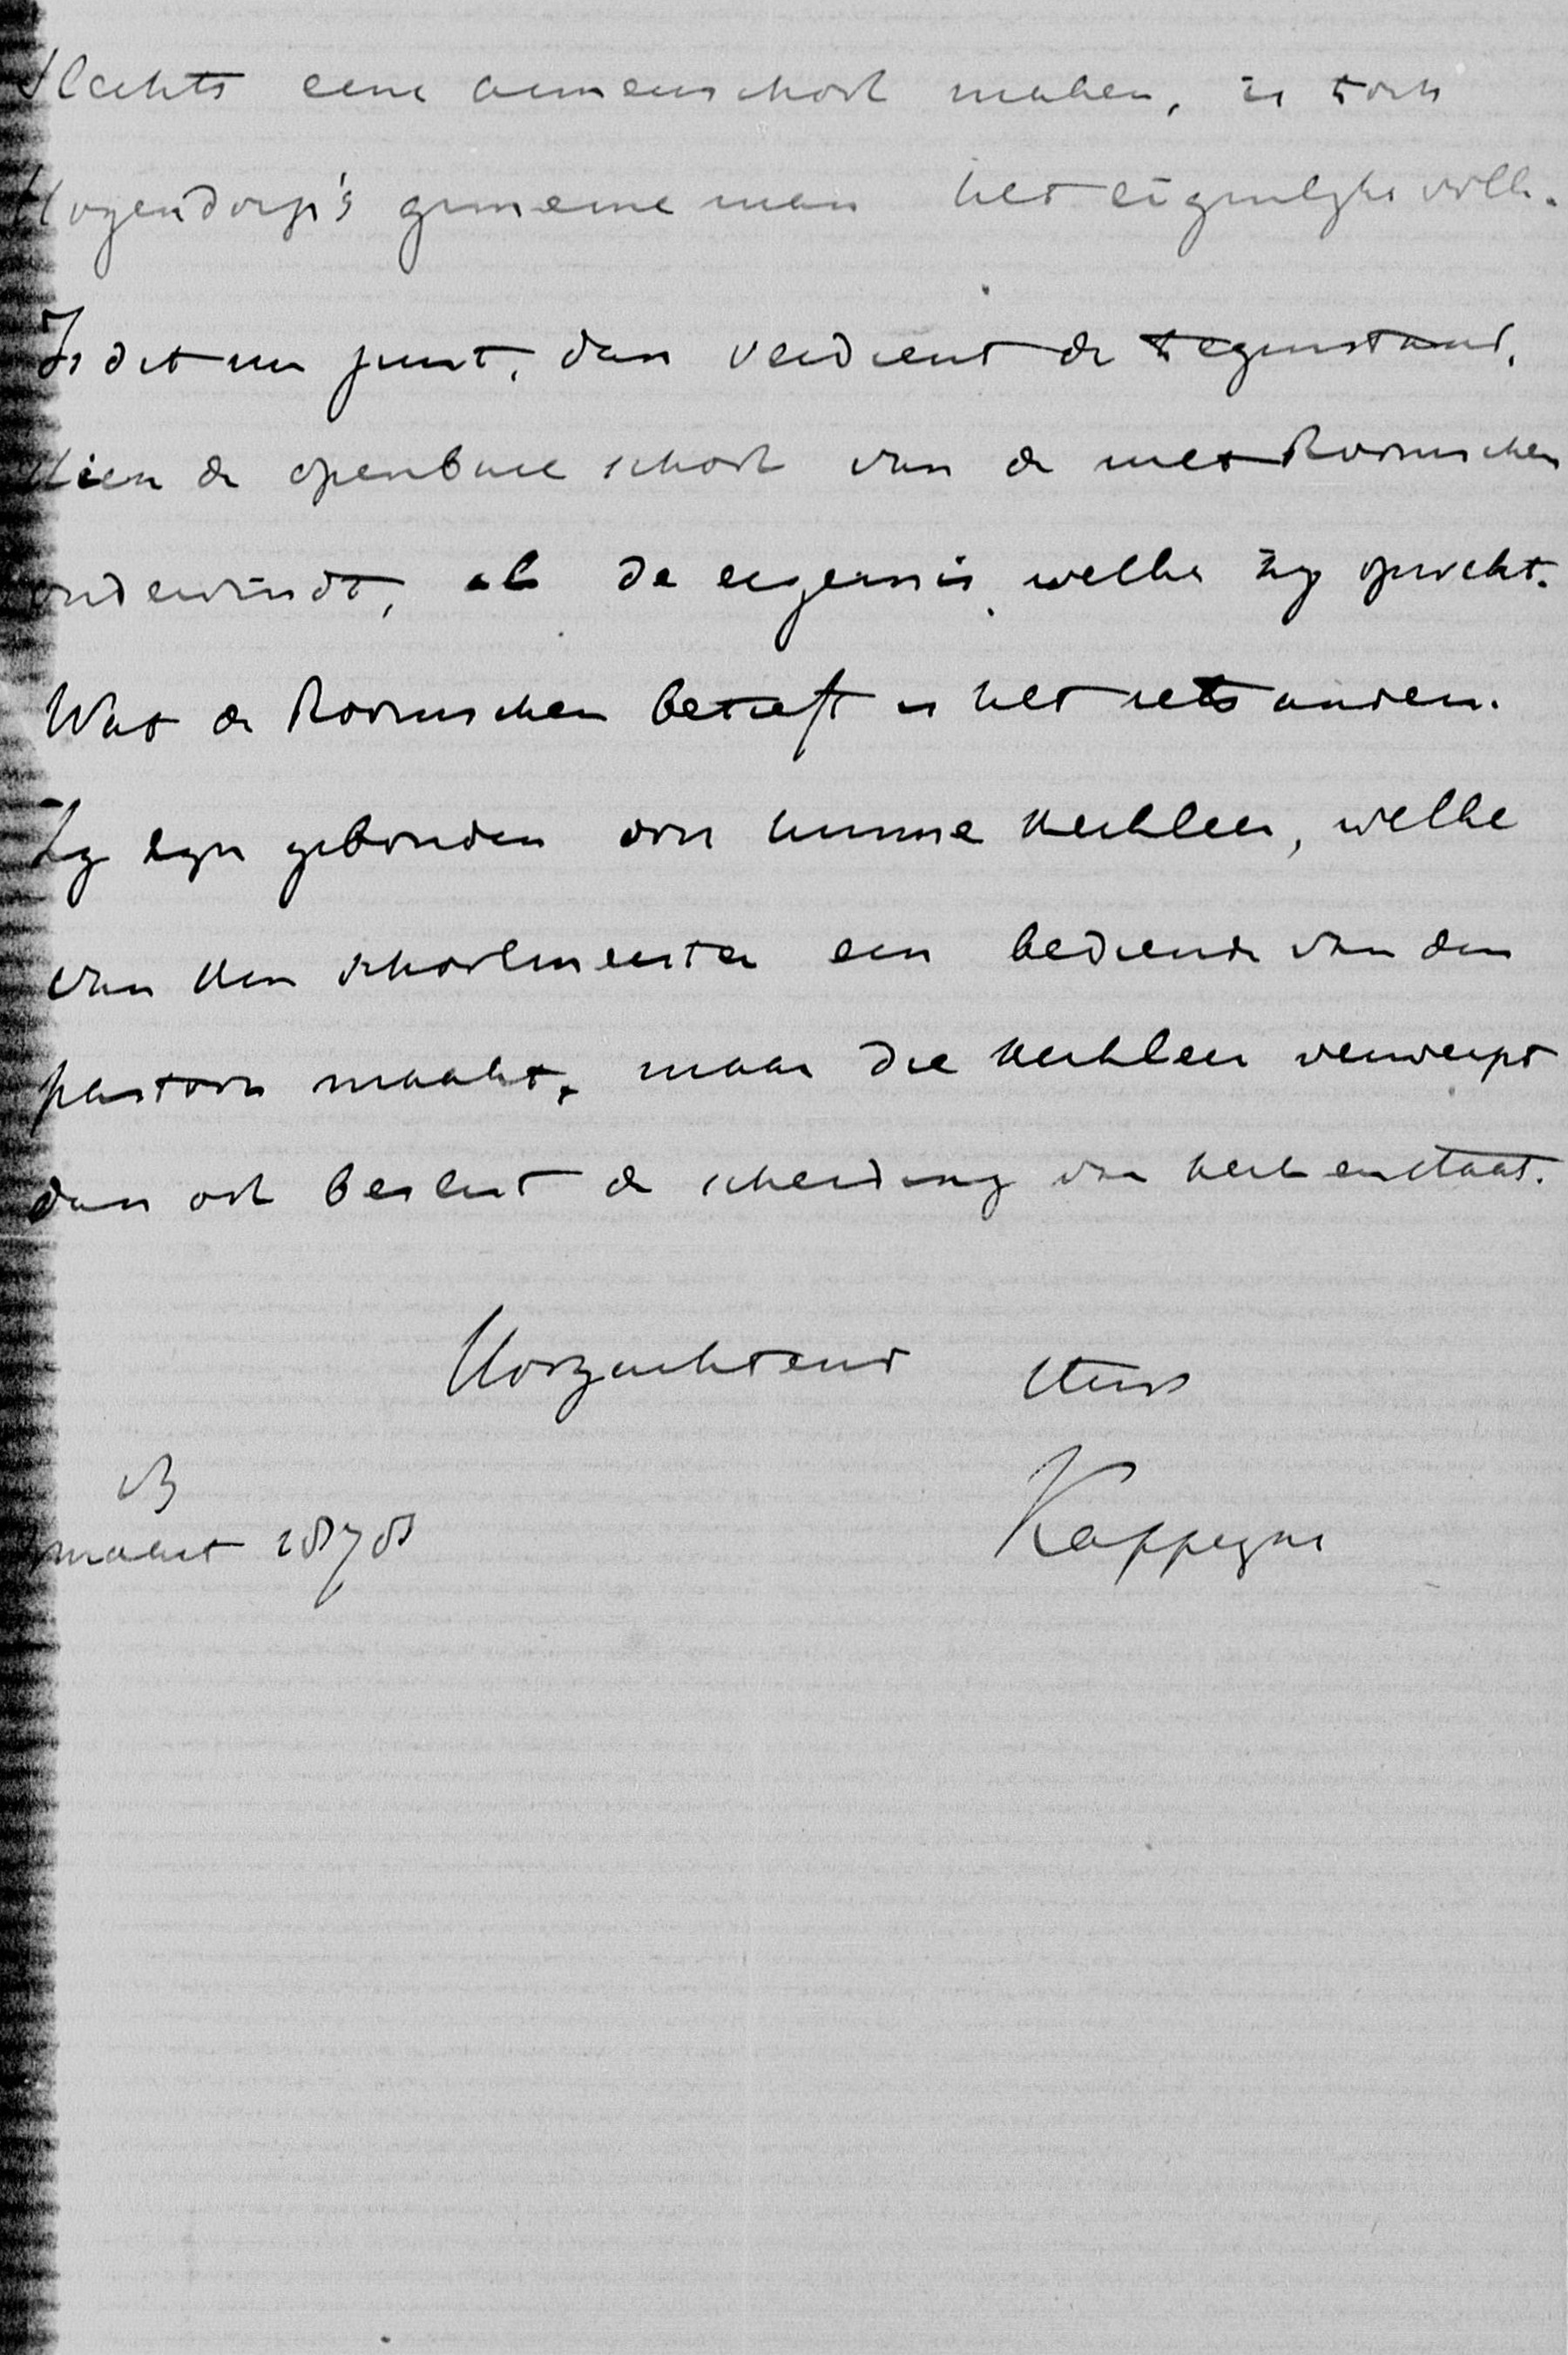 slechts eene armenschool maken, is toch
Hogendorp's gemeene man het eigenlyke volk.
Is dit nu juist, dan verdient de tegenstand,
dien de openbare school van de niet Roomschen
ondervindt, al de ergernis welke hy opwekt.
Wat de Roomschen betreft is het iets anders.
Zy zyn gebonden door hunne kerkleer, welke
van den schoolmeester een bediende van den
pastoor maakt, maar die kerkleer verwerpt
dan ook beslist de scheiding van kerk en staat.
Hoogachtend
Kappeyne
maart 1878